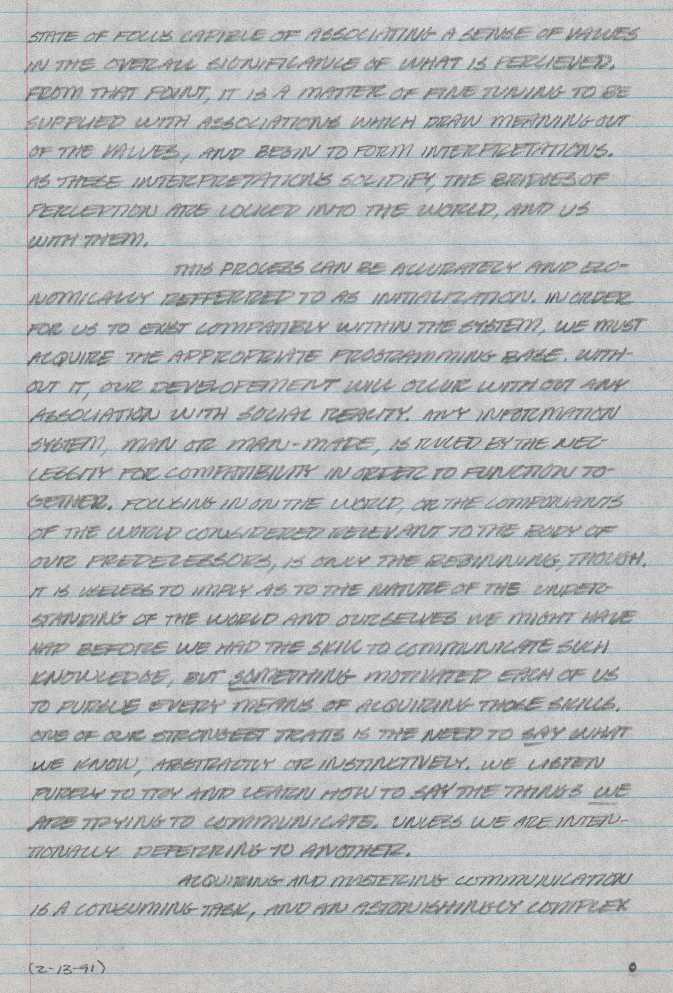 STATE OF FOCUS CAPIBLE OF ASSOCIATING A SENSE OF VALUES
IN THE OVERALL SIGNIFICANCE OF WHAT IS PERCIEVED.
FROM THAT POINT, IT IS A MATTER OF FINE TUNING TO BE
SUPPLIED WITH ASSOCIATIONS WHICH DRAW MEANING OUT
OF THE VALUES, AND BEGIN TO FORM INTERPRETATIONS.
AS THESE INTERPRETATIONS SOLIDIFY, THE BRIDGES OF
PERCEPTION ARE LOCKED INTO THE WORLD, AND US
WITH THEM.
THIS PROCESS CAN BE ACCURATELY AND ECO-
NOMICALLY REFFERRED TO AS INITIALIZATION. IN ORDER
FOR US TO EXIST COMPATIBLY WITHIN THE SYSTEM, WE MUST
ACQUIRE THE APPROPRIATE PROGRAMMING BASE. WITH-
OUT IT, OUR DEVELOPEMENT WILL OCCUR WITHOUT ANY
ASSOCIATION WITH SOCIAL REALITY. ANY INFORMATION
SYSTEM, MAN OR MAN-MADE, IS RULED BY THE NEC-
CESSITY FOR COMPATIBILITY IN ORDER TO FUNCTION TO-
GETHER. FOCUSING IN ON THE WORLD, OR THE COMPONANTS
OF THE WORLD CONSIDERED RELEVANT TO THE BODY OF
OUR PREDECESSORS, IS ONLY THE BEGINNING, THOUGH.
IT IS USELESS TO IMPLY AS TO THE NATURE OF THE UNDER-
STANDING OF THE WORLD AND OURSELVES WE MIGHT HAVE
HAD BEFORE WE HAD THE SKILL TO COMMUNICATE SUCH
KNOWLEDGE, BUT SOMETHING MOTIVATED EACH OF US
TO PURSUE EVERY MEANS OF ACQUIRING THOSE SKILLS.
ONE OF OUR STRONGEST TRAITS IS THE NEED TO SAY WHAT
WE KNOW, ABSTRACTLY OR INSTINCTIVELY. WE LISTEN
PURELY TO TRY AND LEARN HOW TO SAY THE THINGS WE
ARE TRYING TO COMMUNICATE. UNLESS WE ARE INTEN-
TIONALLY DEFERRING TO ANOTHER.
ACQUIRING AND MASTERING COMMUNICATION
IS A CONSUMING TASK, AND AN ASTONISHINGLY COMPLEX
(2-13-91)